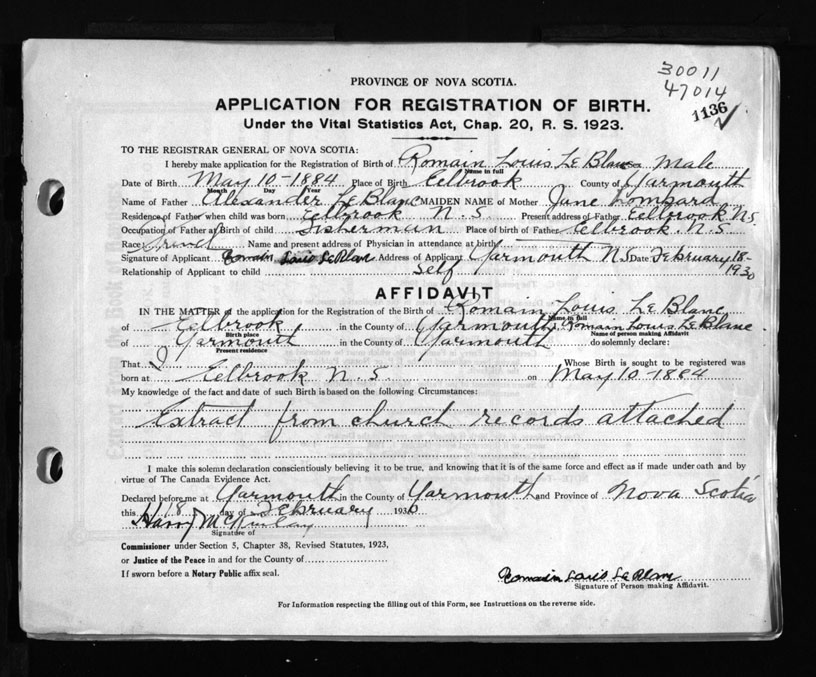 30011
47014
1136
PROVINCE OF NOVA SCOTIA.
APPLICATION FOR REGISTRATION OF BIRTH.
Under the Vital Statistics Act, Chap. 20, R. S. 1923.
TO THE REGISTRAR GENERAL OF NOVA SCOTIA:
I hereby make application for the Registration of Birth of Romain Louis LeBlanc Male
Name in full
Date of Birth May 10-1884 Place of Birth Eelbrook County of Yarmouth
Month Day Year
Name of Father Alexander LeBlanc MAIDEN NAME of Mother Jane Lombard
Residence of Father when child was born Eelbrook N S Present address of Father Eelbrook N.S.
Occupation of Father at Birth of child Fisherman Place of birth of Father Eelbrook. N. S.
Race French Name and present address of Physician in attendance at birth
Signature of Applicant Romain Louis LeBlanc Address of Applicant Yarmouth N S Date February 18-
1930
Relationship of Applicant to child Self
AFFIDAVIT
IN THE MATTER of the application for the Registration of the Birth of Romain Louis LeBlanc
Name in full
of Eelbrook in the County of Yarmouth, Romain Louis LeBlanc
Birth place Name of person making Affidavit
of Yarmouth in the County of Yarmouth do solemnly declare:
Present residence
That I Whose Birth is sought to be registered was
born at Eelbrook N. S. on May 10-1884
My knowledge of the fact and date of such Birth is based on the following Circumstances:
Extract from church records attached
I make this solemn declaration conscientiously believing it to be true, and knowing that it is of the same force and effect as if made under oath and by
virtue of The Canada Evidence Act.
Declared before me at Yarmouth in the County of Yarmouth and Province of Nova Scotia
this 18 day of February 1930
Harry McKinlay
Signature of
Commissioner under Section 5, Chapter 38, Revised Statutes, 1923,
or Justice of the Peace in and for the County of
If sworn before a Notary Public affix seal.
Romain Louis LeBlanc
Signature of Person making Affidavit.
For Information respecting the filling out of this Form, see Instructions on the reverse side.